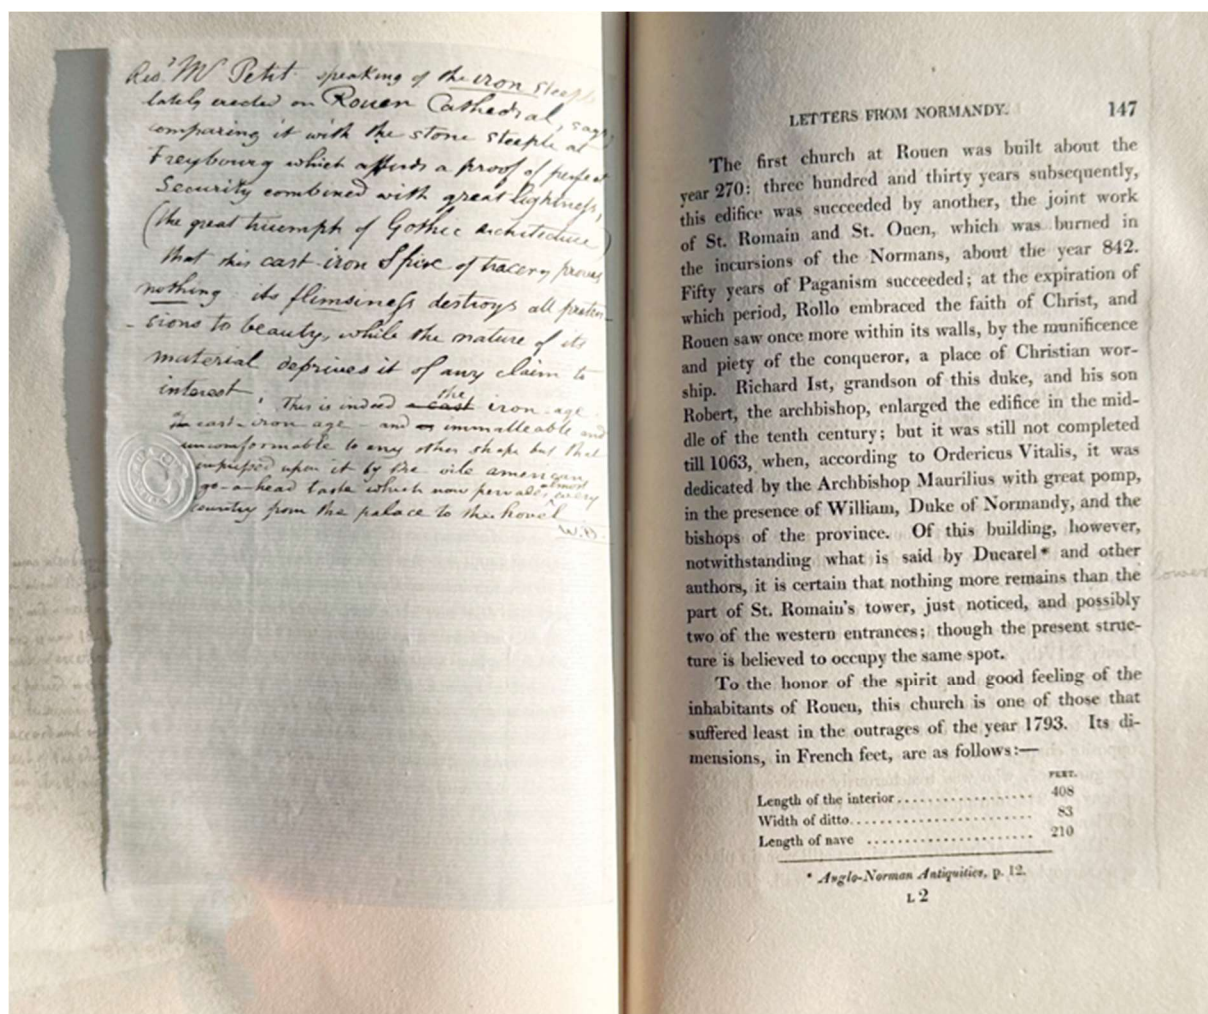 Rev.d Mr Petit speaking of the iron steeple
lately erected on Rouen Cathedral, says,
comparing it with the stone steeple at
Freybourg which affords a proof of perfect
Security combined with great lightness,
(the great triumph of Gothic architecture)
that this cast-iron Spire of tracery proves
nothing: its flimsiness destroys all preten-
-sions to beauty, while the nature of its
material deprives it of any claim to
interest. This is indeed a cast the iron-age
cast-iron age - and immalleable and
uncomformable to any other shape but that
impressed upon it by the vile american
go-a-head taste which now pervades almost every
country from the palace to the hovel
LETTERS FROM NORMANDY. 147
The first church at Rouen was built about the
year 270: three hundred and thirty years subsequently,
this edifice was succeeded by another, the joint work
of St. Romain and St. Ouen, which was burned in
the incursions of the Normans, about the year 842.
Fifty years of Paganism succeeded; at the expiration of
which period, Rollo embraced the faith of Christ, and
Rouen saw once more within its walls, by the munificence
and piety of the conqueror, a place of Christian wor-
ship. Richard Ist, grandson of this duke, and his son
Robert, the archbishop, enlarged the edifice in the mid-
dle of the tenth century; but it was still not completed
till 1063, when, according to Ordericus Vitalis, it was
dedicated by the Archbishop Maurilius with great pomp,
in the presence of William, Duke of Normandy, and the
bishops of the province. Of this building, however,
notwithstanding what is said by Ducarel* and other
authors, it is certain that nothing more remains than the
part of St. Romain's tower, just noticed, and possibly
two of the western entrances; though the present struc-
ture is believed to occupy the same spot.
To the honor of the spirit and good feeling of the
inhabitants of Rouen, this church is one of those that
suffered least in the outrages of the year 1793. Its di-
mensions, in French feet, are as follows:—
FEET.
Length of the interior.................... 408
Width of ditto........................... 83
Length of nave ......................... 210
* Anglo-Norman Antiquities, p. 12.
L 2